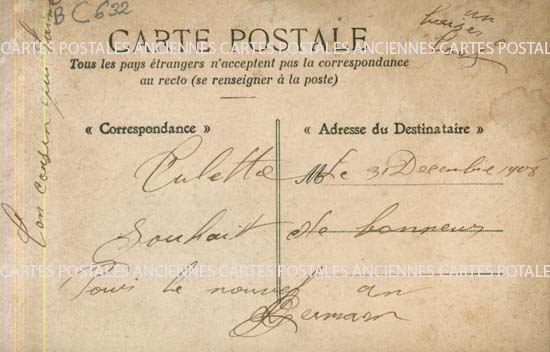 BC 632
un
CARTE POSTALE
CARTES POSTALES ANCIENNES CARTES POSTALES ANCIENNES CARTES POSTALE
Tous les pays étrangers n'acceptent pas la correspondance
au recto (se renseigner à la poste)
« Correspondance »
« Adresse du Destinataire »
Culetta le 31 Decembre 1908
Souhait de bonneur
CARTES POSTALES ANCIENNES CARTES POSTALES ANCIENNES CARTES POSTALE
Pour le nouvel an
Germain
Ton cousin qui